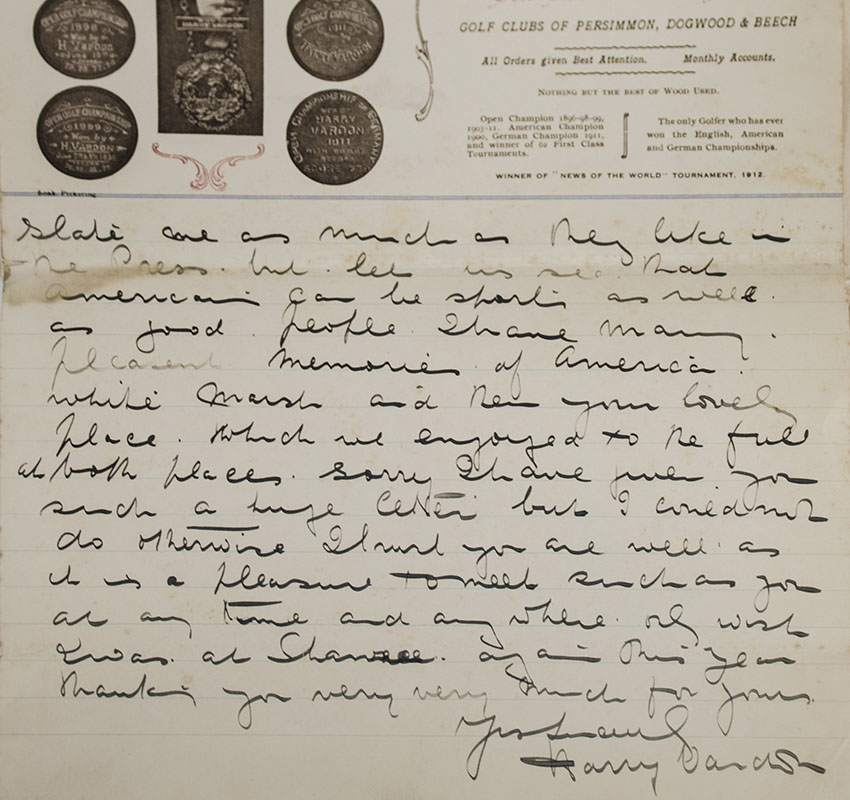 OPEN GOLF CHAMPIONSHIP
1898
Won by
H. Vardon
HARRY VARDON
1911
HARRY VARDON
OPEN GOLF CHAMPIONSHIP
1899
Won by
H. VARDON
CHAMPIONSHIP OF GERMANY
WON BY
HARRY
VARDON
1911
GOLF CLUBS OF PERSIMMON, DOGWOOD & BEECH
All Orders given Best Attention. Monthly Accounts.
NOTHING BUT THE BEST OF WOOD USED.
Open Champion 1896-98-99,
1903-11. American Champion
1900, German Champion 1911,
and winner of 62 First Class
Tournaments.
The only Golfer who has ever
won the English, American
and German Championships.
WINNER OF "NEWS OF THE WORLD" TOURNAMENT, 1912.
slate one as much as they like in
the Press. but let us see that
Americans can be sports as well.
as good people. I have many
pleasent memories of America.
white Marsh and then your lovely
place. which we enjoyed to the full
at both places. Sorry I have given you
such a huge letter but I could not
do otherwise I trust you are well as
it is a pleasure to meet such as you
at any time and any where. only wish
I was at Shawnee. again this year
thanking you very very much for yours.
Yrs Sincerely
Harry Vardon